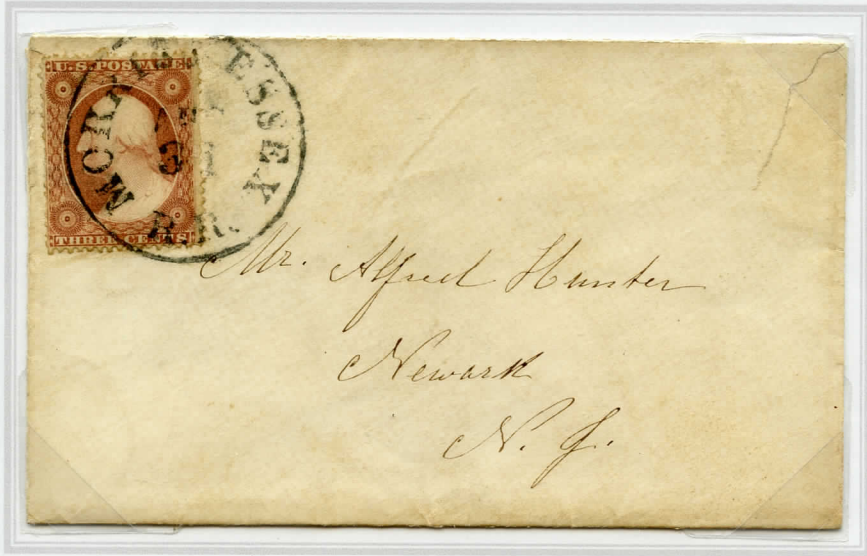 U.S. POSTAGE
THREE CENTS
ESSEX
R.R.
Mr. Alfred Hunter
Newark
N. J.